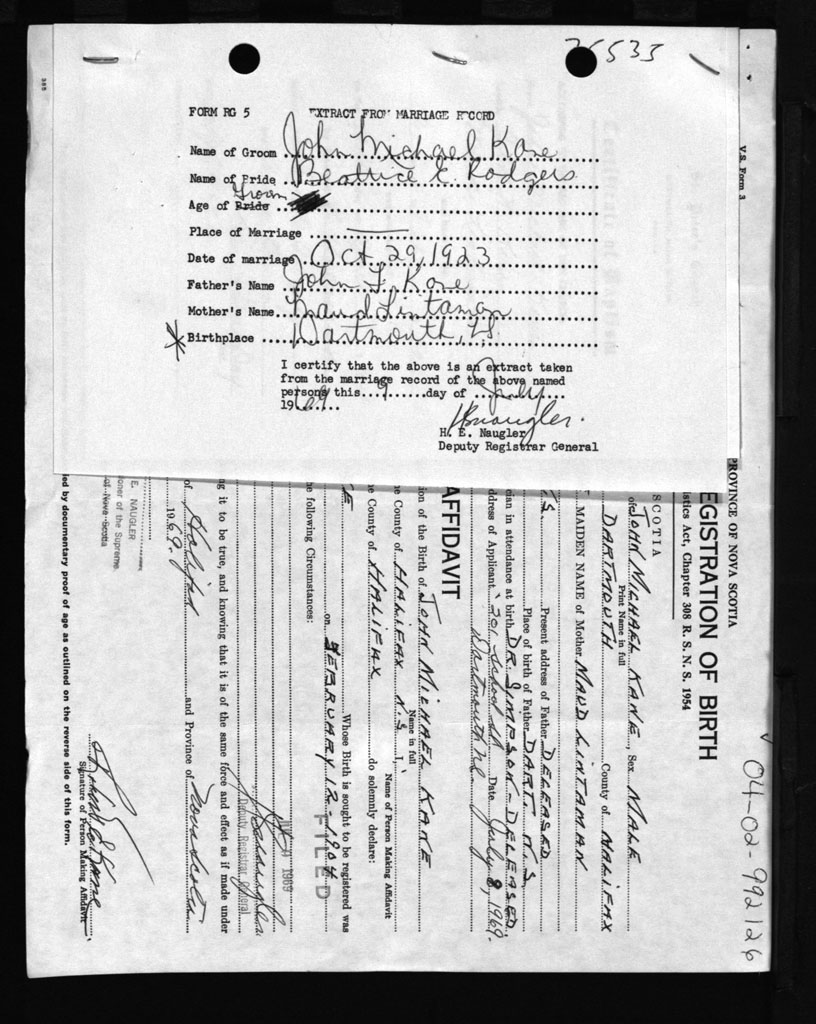 35533
FORM RG 5 EXTRACT FROM MARRIAGE RECORD
Name of Groom John Michael Kane
Name of Bride Beatrice E. Rodgers
Groom
Age of Bride
Place of Marriage ———
Date of marriage Oct. 29, 1923
Father's Name John F. Kane
Mother's Name Maud Lintaman
* Birthplace Dartmouth, NS
I certify that the above is an extract taken
from the marriage record of the above named
persons this 9 day of July
1969
HEnaugler
H. E. Naugler
Deputy Registrar General
V.S. Form 3
PROVINCE OF NOVA SCOTIA
EGISTRATION OF BIRTH
istics Act, Chapter 308 R. S. N. S. 1954
SCOTIA
of JOHN MICHAEL KANE, Sex MALE
Print Name in full
DARTMOUTH County of HALIFAX
MAIDEN NAME of Mother MAUD LINTAMAN
Present address of Father DECEASED
Place of birth of Father DART. N.S.
cian in attendance at birth DR. SIMPSON - DECEASED
ddress of Applicant 201 School St Date July 8, 1969.
Dartmouth NS.
AFFIDAVIT
ion of the Birth of JOHN MICHAEL KANE
Name in full
e County of HALIFAX N.S. I,
Name of Person Making Affidavit
e County of HALIFAX do solemnly declare:
Whose Birth is sought to be registered was
on FEBRUARY 12 - 1904
he following Circumstances:
FILED
1969
Deputy Registrar General
ng it to be true, and knowing that it is of the same force and effect as if made under
of Halifax and Province of Nova Scotia
1969.
E. NAUGLER
oner of the Supreme
of Nova Scotia
Signature of Person Making Affidavit
ied by documentary proof of age as outlined on the reverse side of this form.
04-02-992126